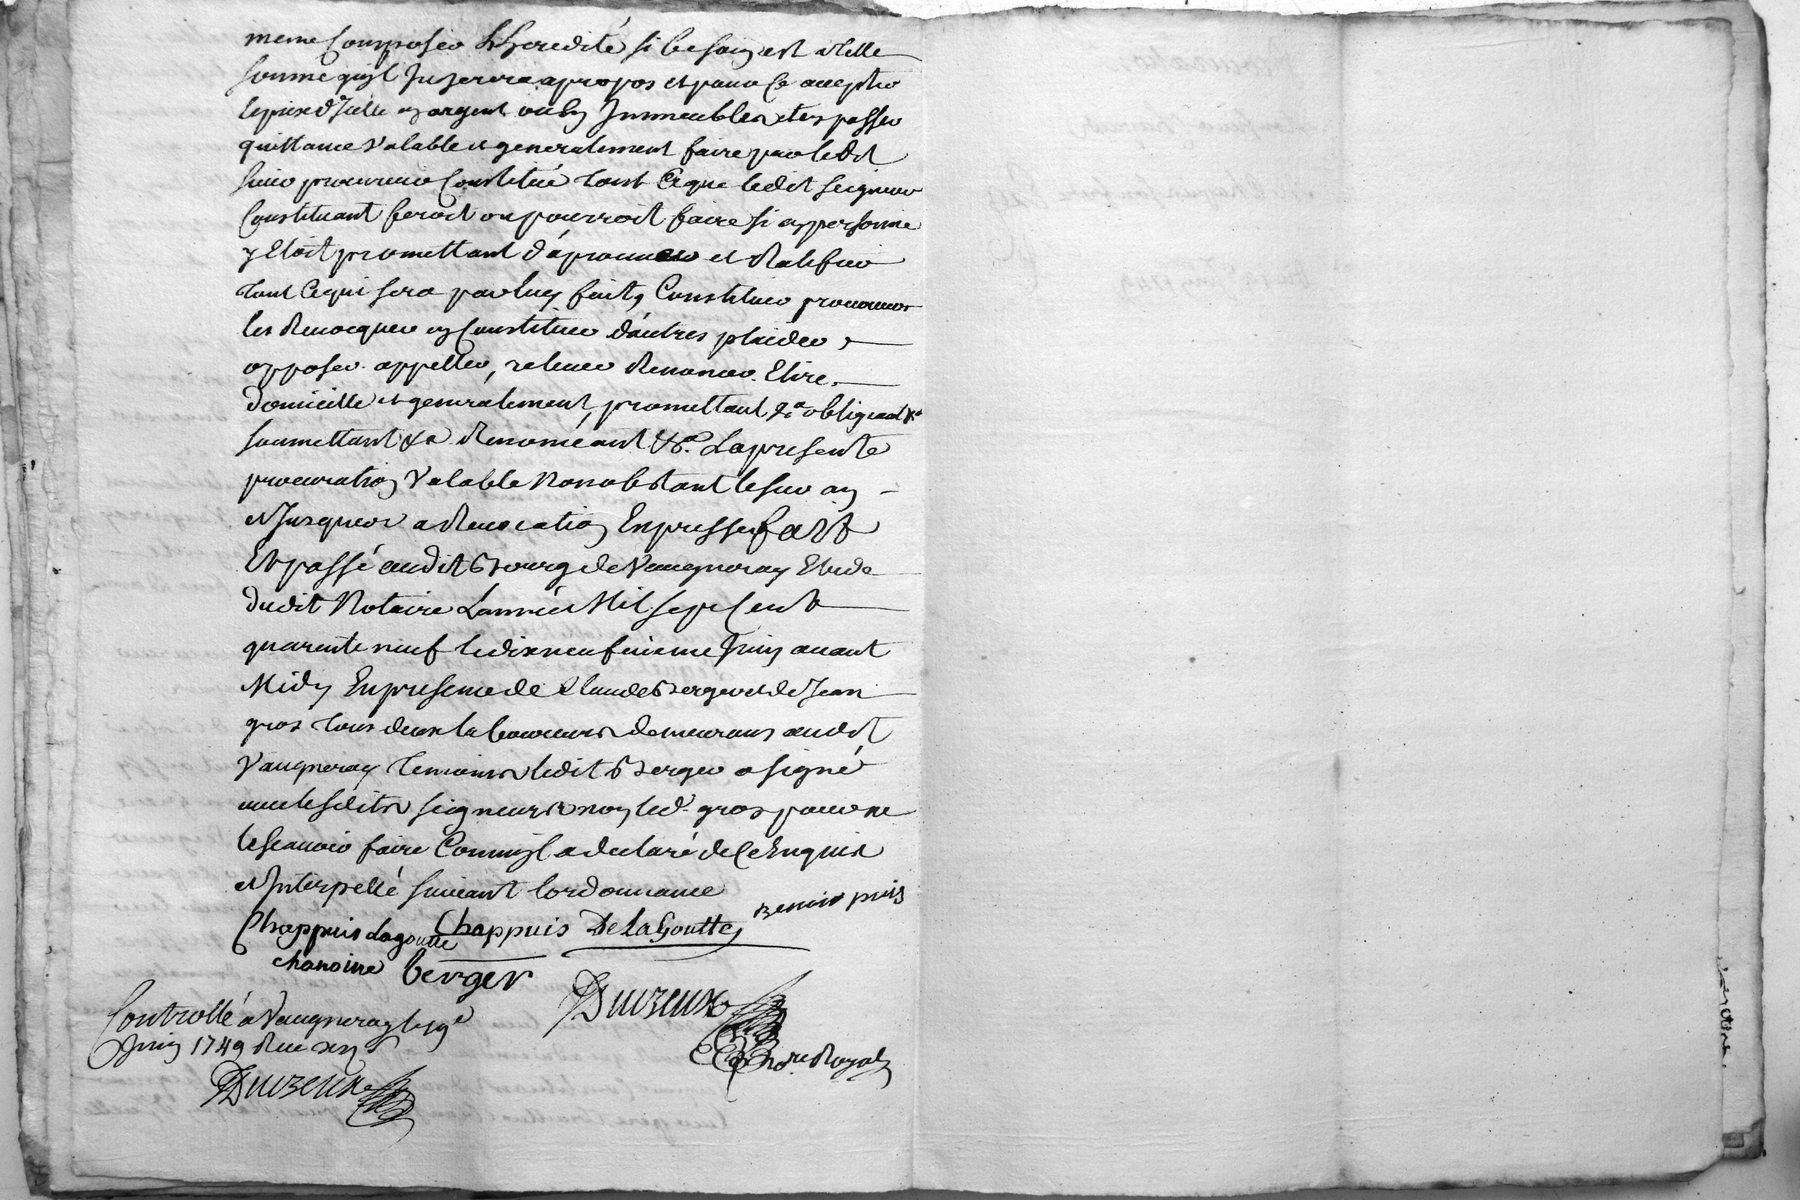 meme Composer L'heredité si besoin est a telle
somme quyl Jugerera apropos et pour Ce accepter
le prix d'Icelle en argent ou En Immeubles et en passer
quittance Valable et generalement faire par le dit
sieur procureur Constitué tout Ce que ledit seigneur
Constituant feroit ou pourroit faire si en personne
y Etoit promettant d'áprouver et Ratifier
tout Ce qui sera par luy fait, Constituer procureurs
les Revocquer en Constituer d'autres plaider
opposer appeller, relever Renoncer Elire
Domicille et generalement, promettant &a obligeant &a
soumettant &a Renonceant &a. La presente
procuration Valable Nonobstant le sur an
et Jusques a Revocation Expresse fait
Et passé audit Bourg de Vaugneray Etude
dudit Notaire L'année Mil sept Cent
quarente neuf le dix neufuieme Juin auant
Midy En presence de Claude Berger et de Jean
gros tous deux laboureurs demeurans audit
Vaugneray temoins ledit Berger a signé
avec lesdits seigneurs non led. gros pour ne
le scauoir faire Comm'jl a declaré de Ce Enquis
et Interpellé suivant lordonnance
Chappuis Lagoutte Chappuis De La Goutte
chanoine berger
Duvzeux
Controllé á Vaugneray le 19e
Juin 1749 Reçu
nore Royal
Duvzeux